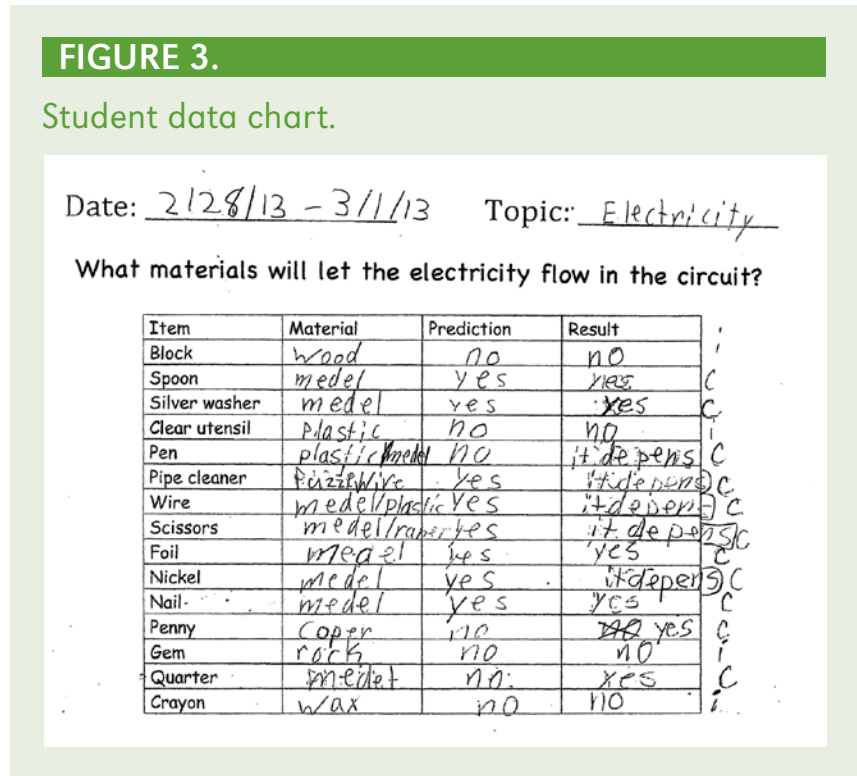 FIGURE 3.
Student data chart.
Date: 2/28/13 - 3/1/13 Topic: Electricity
What materials will let the electricity flow in the circuit?
Item Material Prediction Result
Block wood no no i
Spoon medel yes yes C
Silver washer medel yes yes C
Clear utensil Plastic no no i
Pen plastic/medel no it depens C
Pipe cleaner yes it depens C
Wire medel/plastic yes it depens C
Scissors medel/ yes it depens C
Foil medel yes yes C
Nickel medel yes it depens C
Nail medel yes yes C
Penny Coper no yes C
Gem rock no no i
Quarter medel no yes C
Crayon Wax no no i